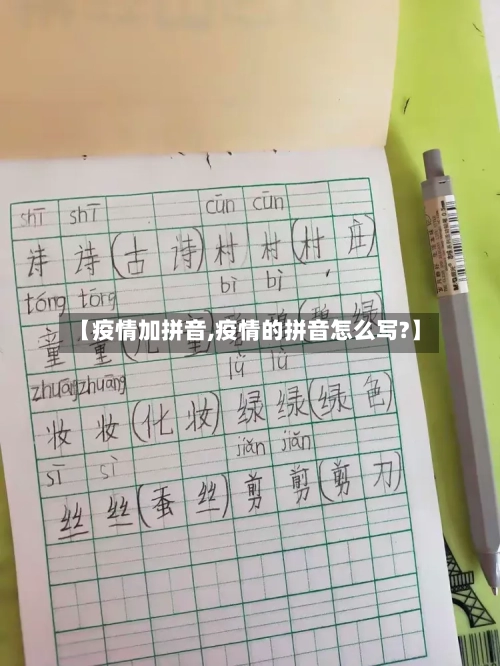 shī shī cūn cūn
诗 诗 (古 诗) 村 村 (村 庄)
tóng tóng bì bì
童 童
【疫情加拼音,疫情的拼音怎么写?】
zhuāng zhuāng lǜ lǜ
妆 妆 (化 妆) 绿 绿 (绿 色)
sī sī jiǎn jiǎn
丝 丝 (蚕 丝) 剪 剪 (剪 刀)